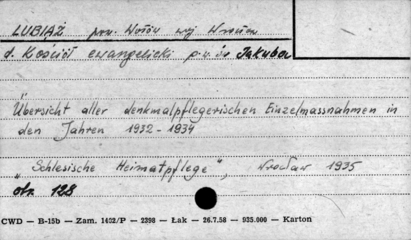 LUBIĄŻ pow. Wołów woj Wrocław
d. Kościół ewangelicki p.w. św Jakuba
Übersicht aller denkmalpflegerischen Einzelmassnahmen in
den Jahren 1932-1934
„Schlesische Heimatpflege", Wrocław 1935
str. 128
CWD — B-15b — Zam. 1422/P — 2398 — Łak — 26.7.58 — 935.000 — Karton